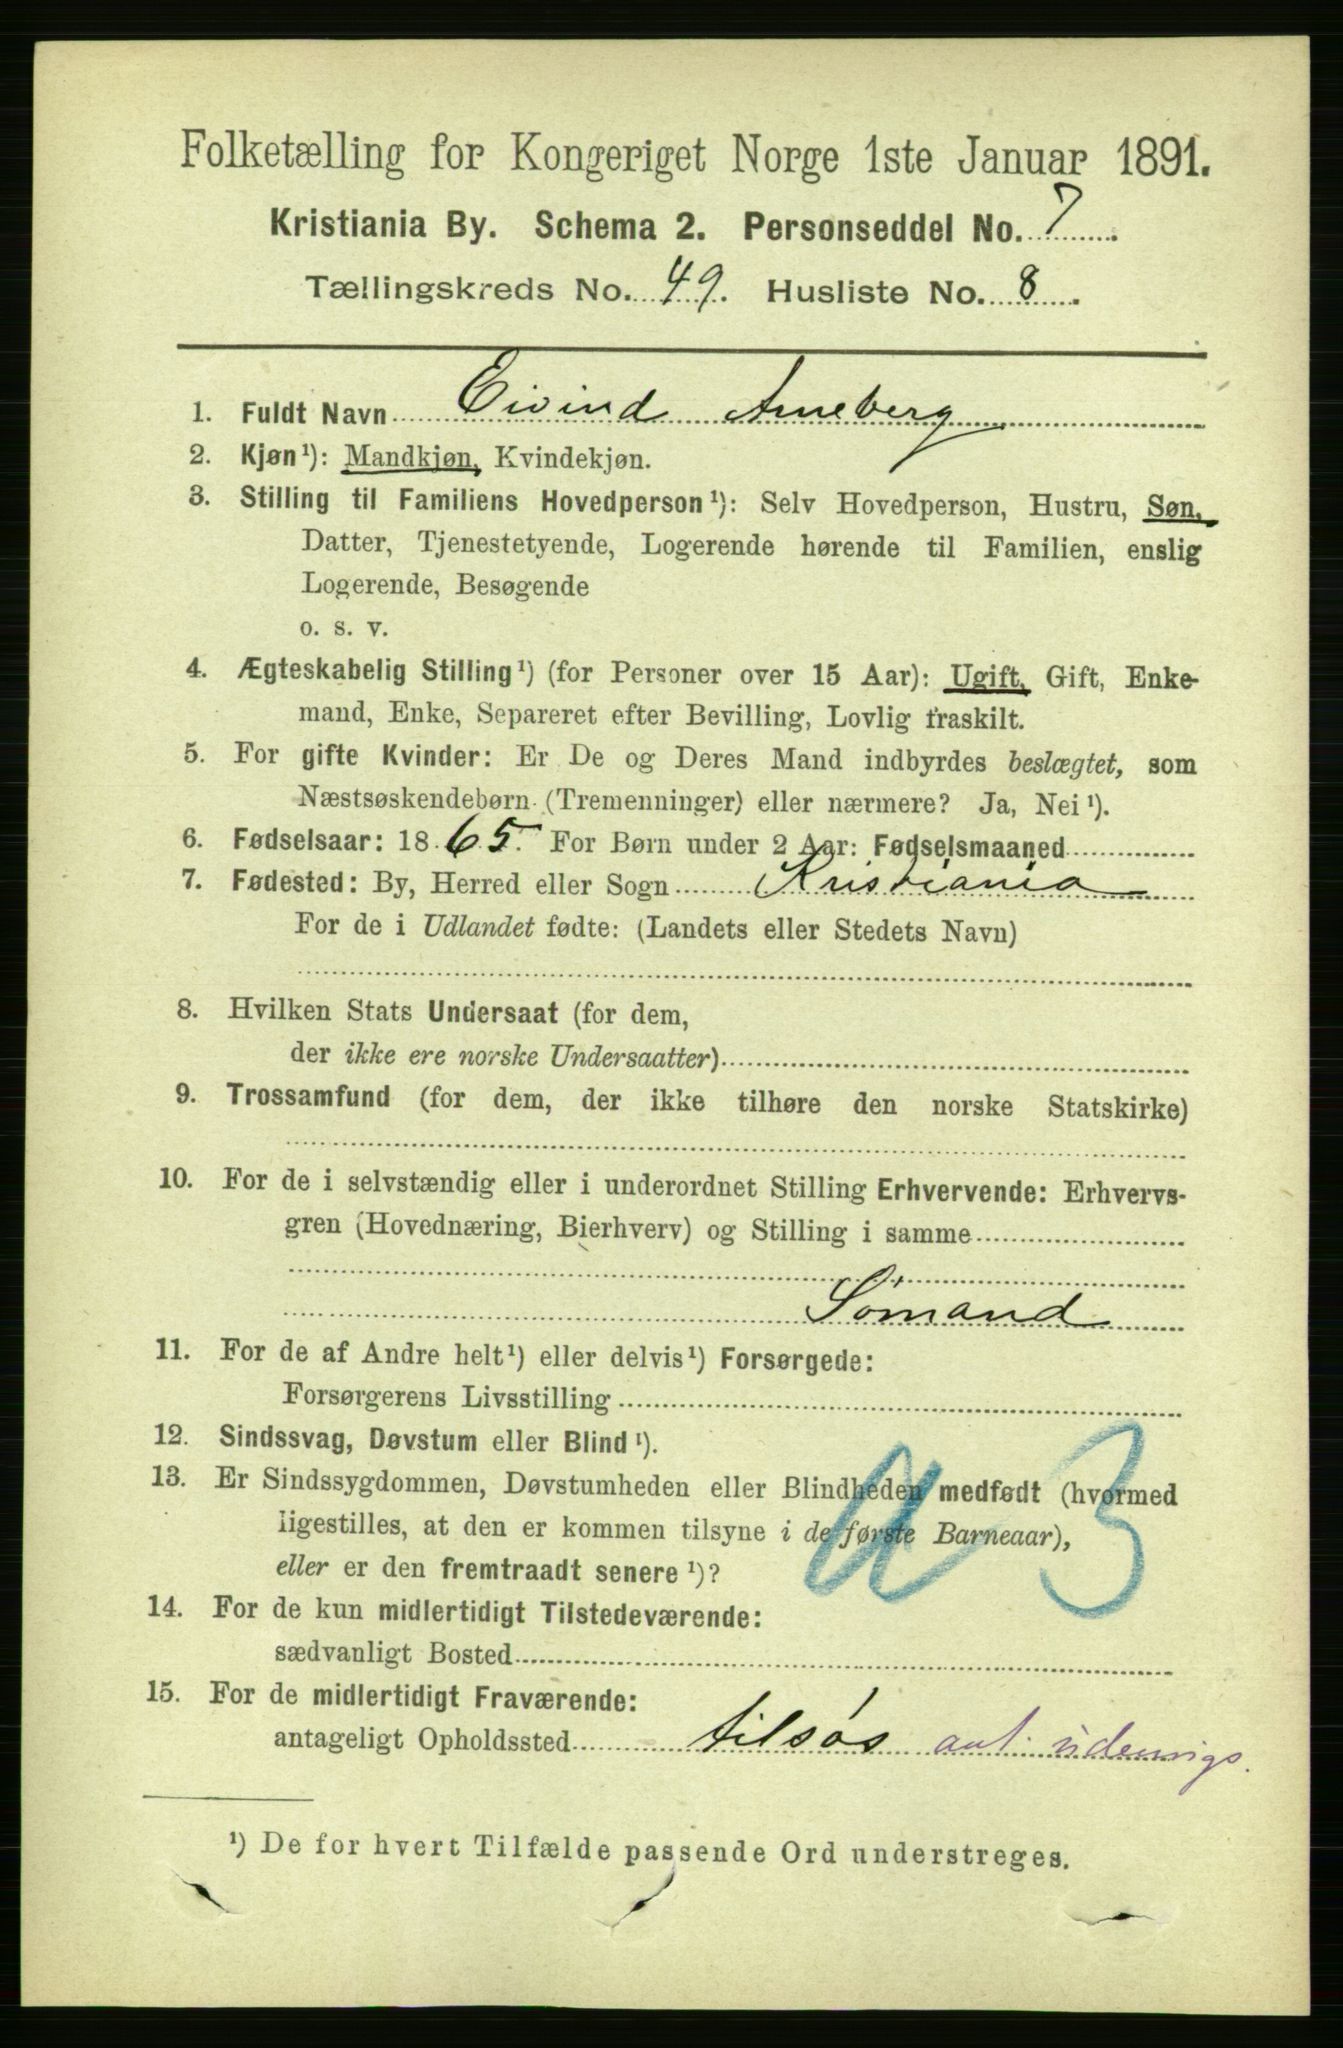 Folketælling for Kongeriget Norge 1ste Januar 1891.
Kristiania By. Schema 2. Personseddel No. 7.
Tællingskreds No. 49. Husliste No. 8.
1. Fuldt Navn Eivind Arneberg
2. Kjøn¹): Mandkjøn, Kvindekjøn.
3. Stilling til Familiens Hovedperson¹): Selv Hovedperson, Hustru, Søn,
Datter, Tjenestetyende, Logerende hørende til Familien, enslig
Logerende, Besøgende
o. s. v.
4. Ægteskabelig Stilling¹) (for Personer over 15 Aar): Ugift, Gift, Enke-
mand, Enke, Separeret efter Bevilling, Lovlig fraskilt.
5. For gifte Kvinder: Er De og Deres Mand indbyrdes beslægtet, som
Næstsøskendebørn (Tremenninger) eller nærmere? Ja, Nei¹).
6. Fødselsaar: 1865. For Børn under 2 Aar: Fødselsmaaned
7. Fødested: By, Herred eller Sogn Kristiania
For de i Udlandet fødte: (Landets eller Stedets Navn)
8. Hvilken Stats Undersaat (for dem,
der ikke ere norske Undersaatter)
9. Trossamfund (for dem, der ikke tilhøre den norske Statskirke)
10. For de i selvstændig eller i underordnet Stilling Erhvervende: Erhvervs-
gren (Hovednæring, Bierhverv) og Stilling i samme
Sömand
11. For de af Andre helt¹) eller delvis¹) Forsørgede:
Forsørgerens Livsstilling
12. Sindssvag, Døvstum eller Blind¹).
13. Er Sindssygdommen, Døvstumheden eller Blindheden medfødt (hvormed
ligestilles, at den er kommen tilsyne i de første Barneaar),
eller er den fremtraadt senere¹)?
a 3
14. For de kun midlertidigt Tilstedeværende:
sædvanligt Bosted
15. For de midlertidigt Fraværende:
antageligt Opholdssted tilsøs ant. udenrigs.
¹) De for hvert Tilfælde passende Ord understreges.